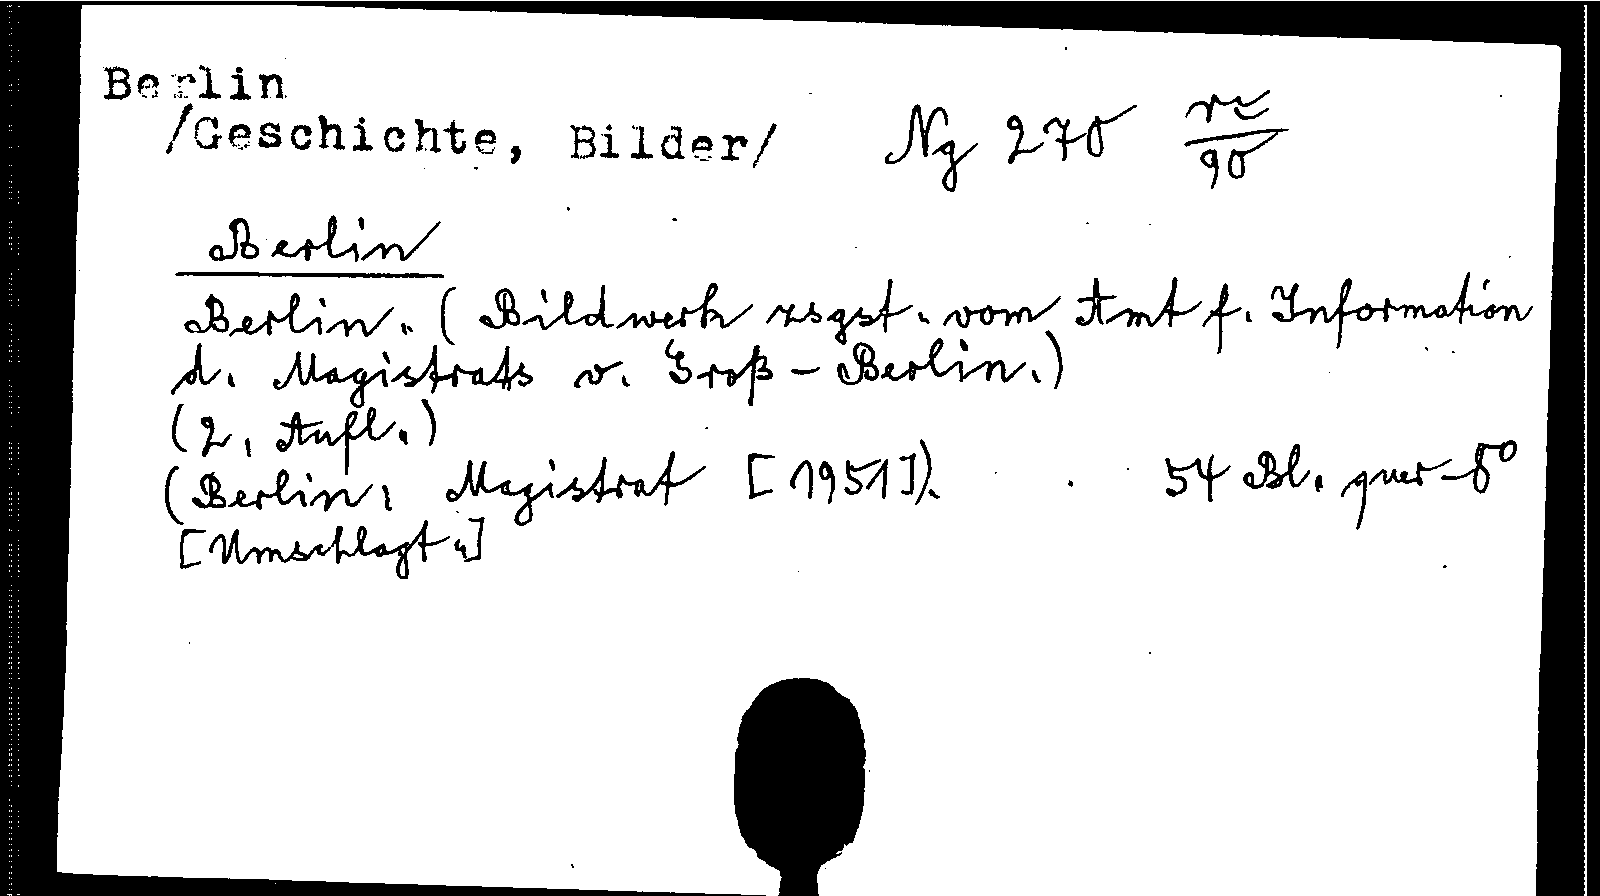 Berlin
/Geschichte, Bilder/ Ng 270 rc/90
Berlin
Berlin. (Bildwerk zsgst. vom Amt f. Information
d. Magistrats v. Groß-Berlin.)
(2. Aufl.)
(Berlin: Magistrat [1951]). 54 Bl. quer-8°
[Umschlagt.]